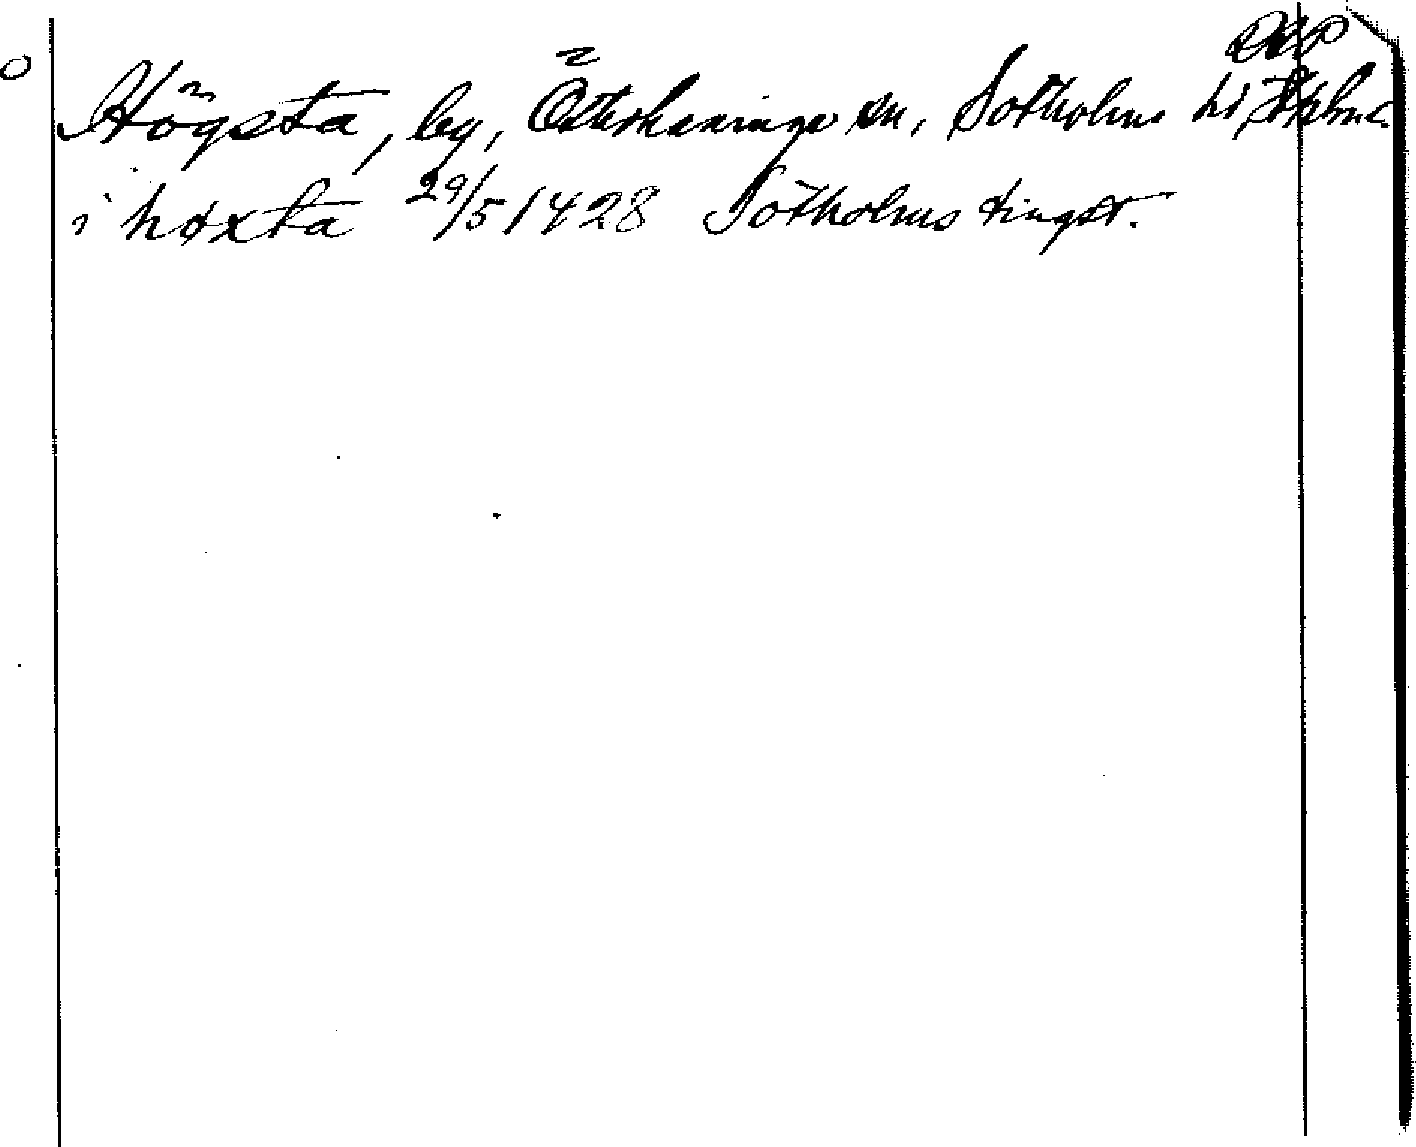 Högsta, by, Österhaninge sn, Sotholms hd, Sthlms l.
i høxta 29/5 1428 Sotholms tingst.